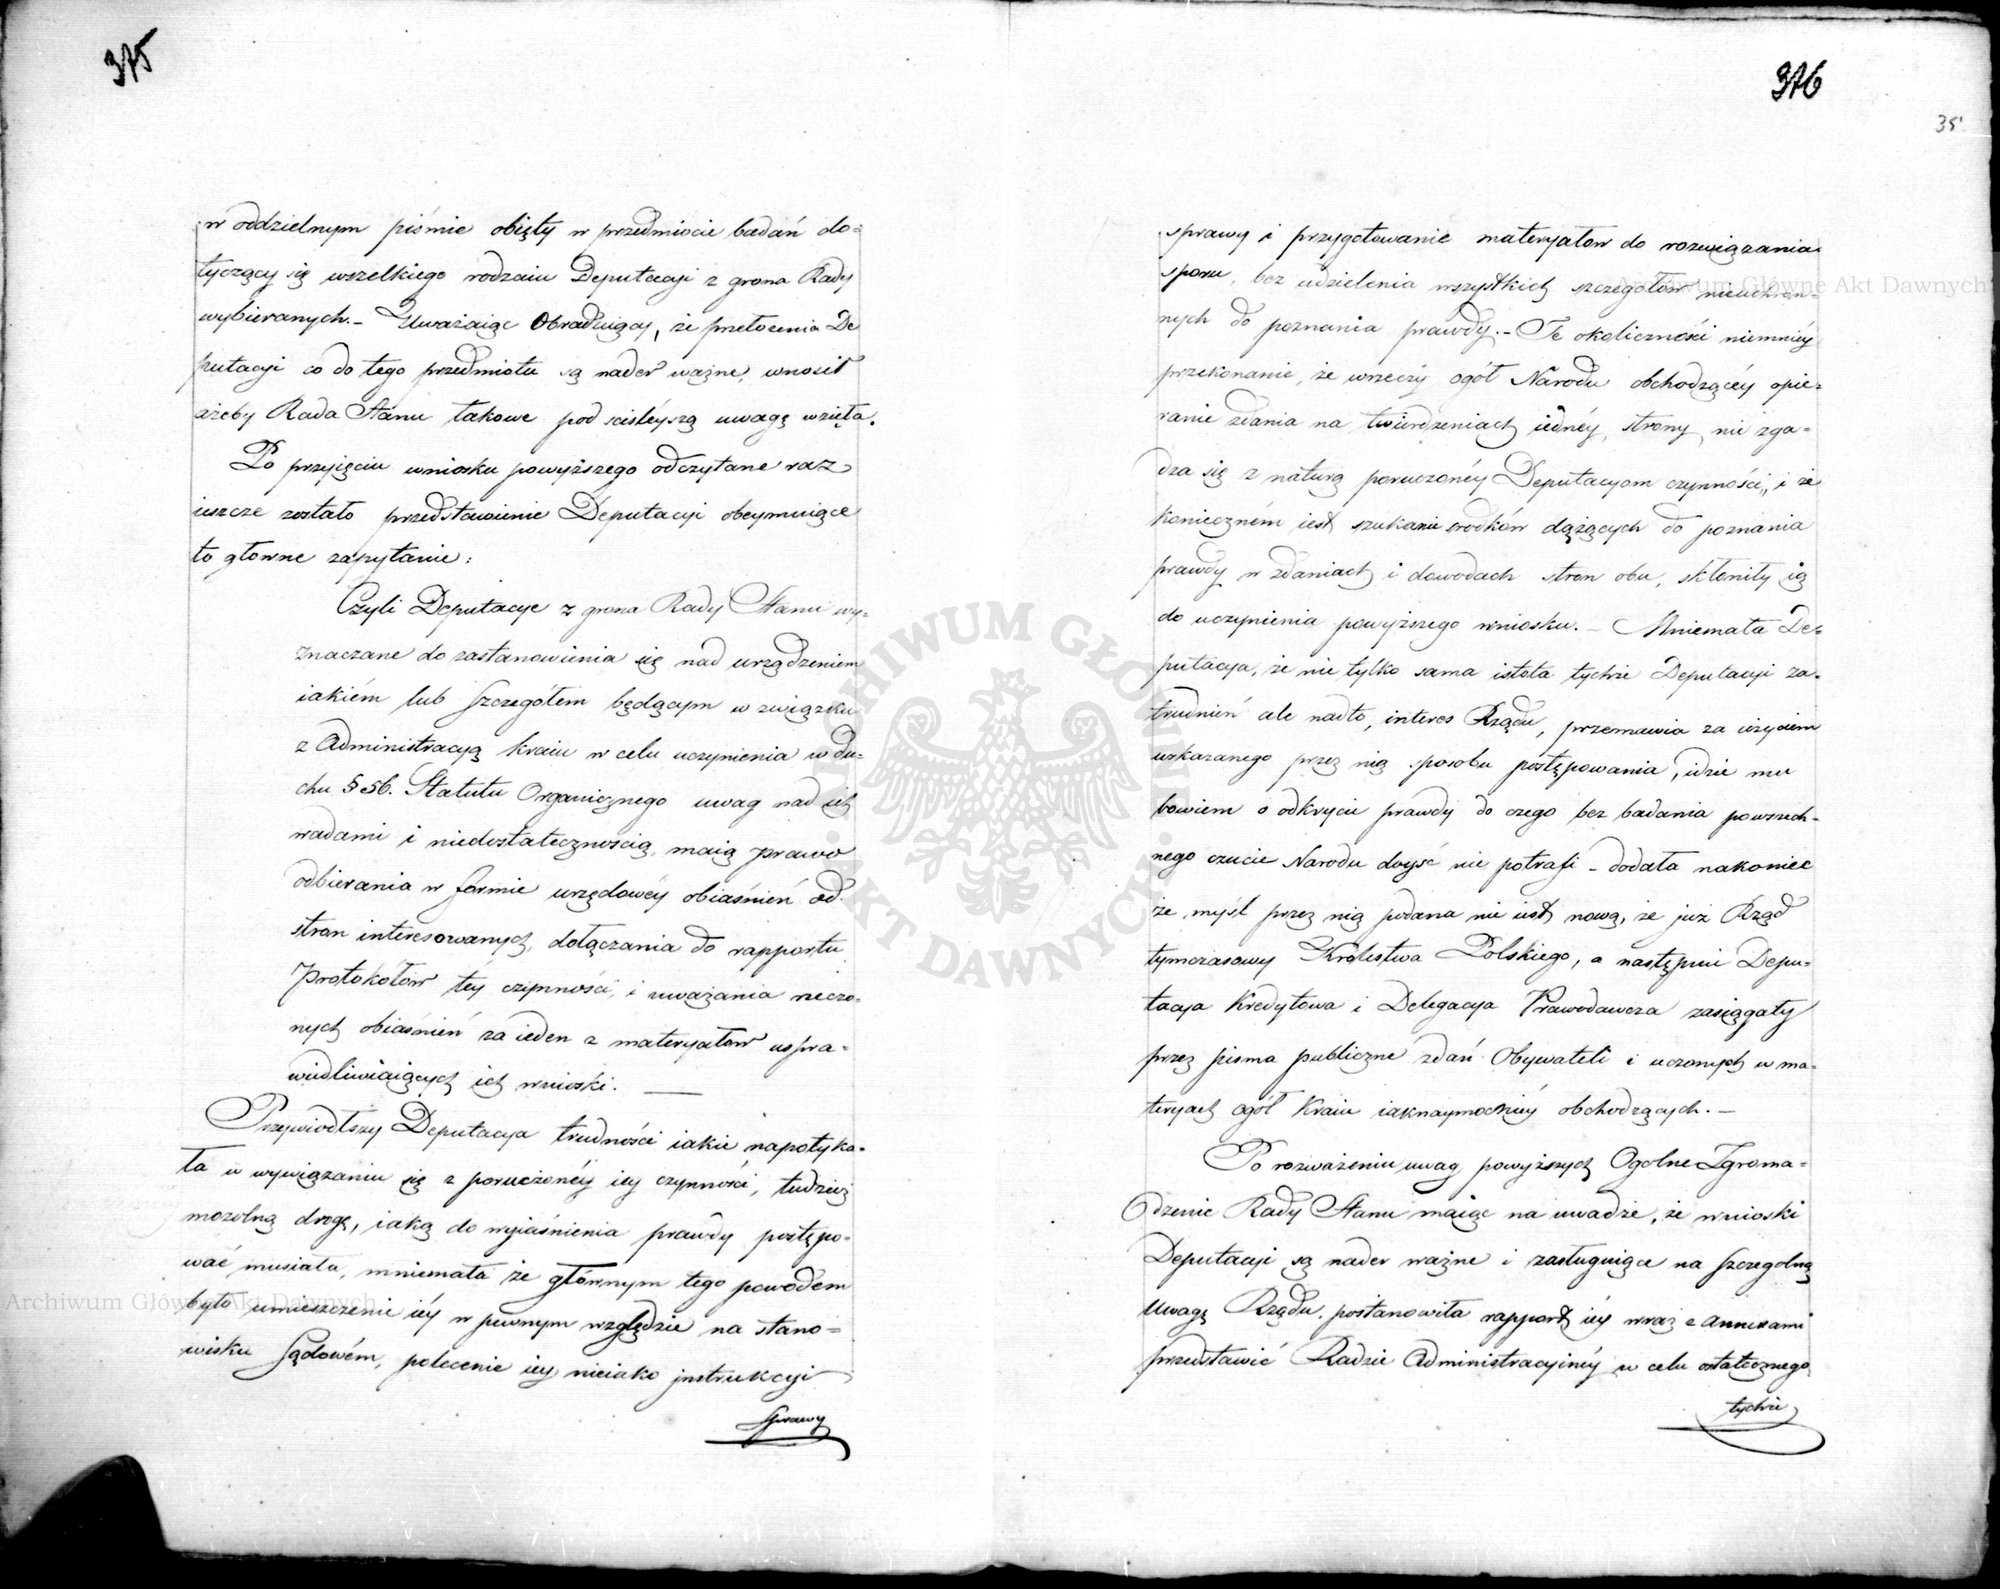 375
w oddzielnym piśmie obięty w przedmiocie badań do=
tyczący się wszelkiego rodzaiu Deputacyi z grona Rady
wybieranych. – Uważaiąc Obraduiący, że przełożenia De
putacyi co do tego przedmiotu są nader ważne, wnosił
ażeby Rada Stanu takowe pod ściśleyszą uwagę wzięła.
Po przyięciu wniosku powyższego odczytane raz
ieszcze zostało przedstawienie Deputacyi obeymuiące
to głowne zapytanie:
Czyli Deputacye z grona Rady Stanu wy=
znaczane do zastanowienia się nad urządzeniem
iakiém lub szczegółem będącym w związku
z Administracyą kraiu w celu uczynienia w du=
chu § 36. Statutu Organicznego uwag nad ich
wadami i niedostatecznością, maią prawo
odbierania w formie urzędowéy obiaśnień od
stron interesowanych, dołączania do rapportu
Protokółów téy czynności, i uważania rzeczo=
nych obiaśnień za ieden z materyałów uspra=
wiedliwiaiących ich wnioski. —
Przywiodłszy Deputacya trudności iakie napotyka=
ła w wywiązaniu się z poruczonéy iey czynności, tudzież
mozolną drogę, iaką do wyiaśnienia prawdy postępo=
wać musiała, mniemała że głównym tego powodem
było umieszczenie iéy w pewnym względzie na stano=
wisku sądowém, polecenie iéy nieiako instrukcyi
sprawy
376
35
sprawy i przygotowanie materyałów do rozwiązania
sporu, bez udzielenia wszystkich szczegółów nieuchron=
nych do poznania prawdy. – Te okoliczności niemniéy
przekonanie, że w rzeczy ogół Narodu obchodzącéy opie=
ranie zdania na twierdzeniach iednéy strony nie zga=
dza się z naturą poruczonéy Deputacyom czynności, i że
konieczném iest szukanie srodków dążących do poznania
prawdy w zdaniach i dowodach stron obu, skłoniły ią
do uczynienia powyższego wniosku. – Mniemała De=
putacya, że nie tylko sama istota tychże Deputacyi za=
trudnień ale nadto, interes Rządu, przemawia za użyciem
wskazanego przez nią sposobu postępowania, idzie mu
bowiem o odkrycie prawdy do czego bez badania powszech=
nego czucia Narodu doyść nie potrafi – dodała nakoniec
że myśl przez nią podana nie iest nową, że już Rząd
tymczasowy Królestwa Polskiego, a następnie Depu=
tacya Kredytowa i Delegacya Prawodawcza zasięgały
przez pisma publiczne zdań Obywateli i uczonych w ma=
teryach ogół Kraiu iaknaymocniéy obchodzących. –
Po rozważeniu uwag powyższych Ogolne Zgroma=
dzenie Rady Stanu maiąc na uwadze, że wnioski
Deputacyi są nader ważne i zasługuiące na szczególną
Uwagę Rządu, postanowiła rapport iéy wraz z annexami
przedstawić Radzie Administracyinéy w celu ostatecznego
tychże
Archiwum Główne Akt Dawnych
Archiwum Główne Akt Dawnych
ARCHIWUM GŁÓWNE AKT DAWNYCH